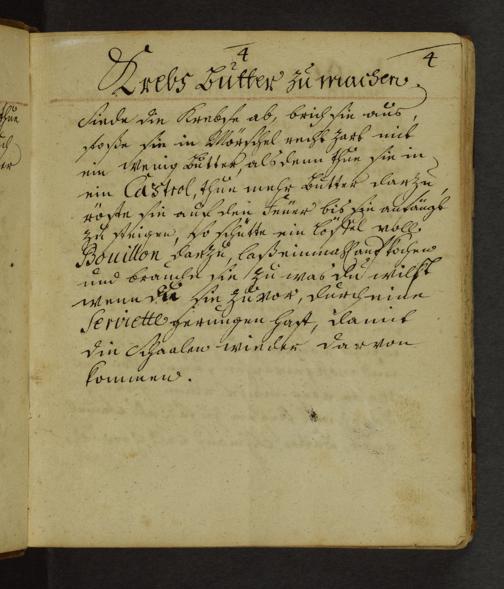 4
4
Krebs Butter zu machen.
Siede die Krebse ab, brich sie aus,
stoße sie in Mörschel recht zart mit
ein wenig Butter, alsdenn thue sie in
ein Castrol, thue mehr Butter darzu,
röste sie auf den Feuer bis sie anfängt
zu steigen, so schütte ein Löffel voll
Bouillon darzu, laß einmahl aufkochen
und brauche sie zu was du wilst
wenn du sie zuvor, durch eine
Serviette gerungen hast, damit
die Schaalen wieder darvon
kommen.